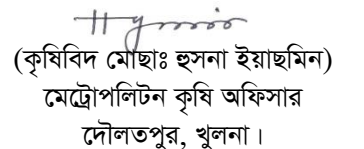 (কৃষিবিদ মোছাঃ হুসনা ইয়াছমিন)
মেট্রোপলিটন কৃষি অফিসার
দৌলতপুর, খুলনা।